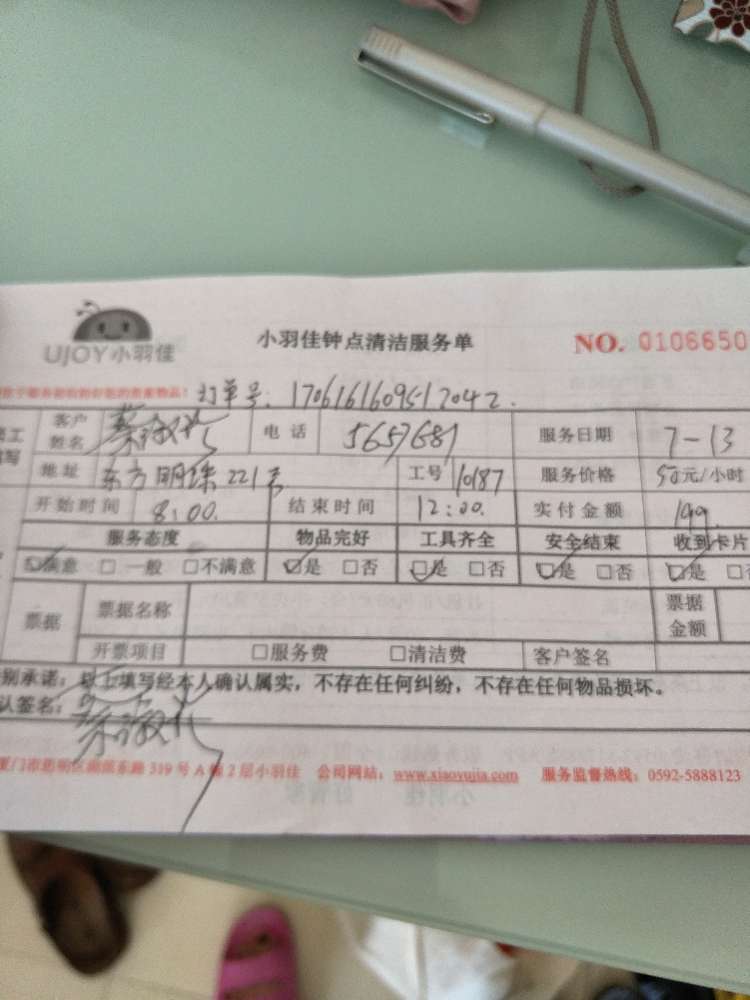 UJOY小羽佳
小羽佳钟点清洁服务单
NO. 0106650
订单号: 1706161609512042.
客户姓名 电话 5657681 服务日期 7-13
地址 东方明珠221号 工号 10187 服务价格 50元/小时
开始时间 8:00. 结束时间 12:00. 实付金额 199.
服务态度 物品完好 工具齐全 安全结束 收到卡片
☑满意 □一般 □不满意 ☑是 □否 ☑是 □否 ☑是 □否 ☑是 □
票据 票据名称 票据金额
开票项目 □服务费 □清洁费 客户签名
别承诺：以上填写经本人确认属实，不存在任何纠纷，不存在任何物品损坏。
认签名：
319号A幢2层小羽佳 公司网站：www.xiaoyujia.com 服务监督热线：0592-5888123